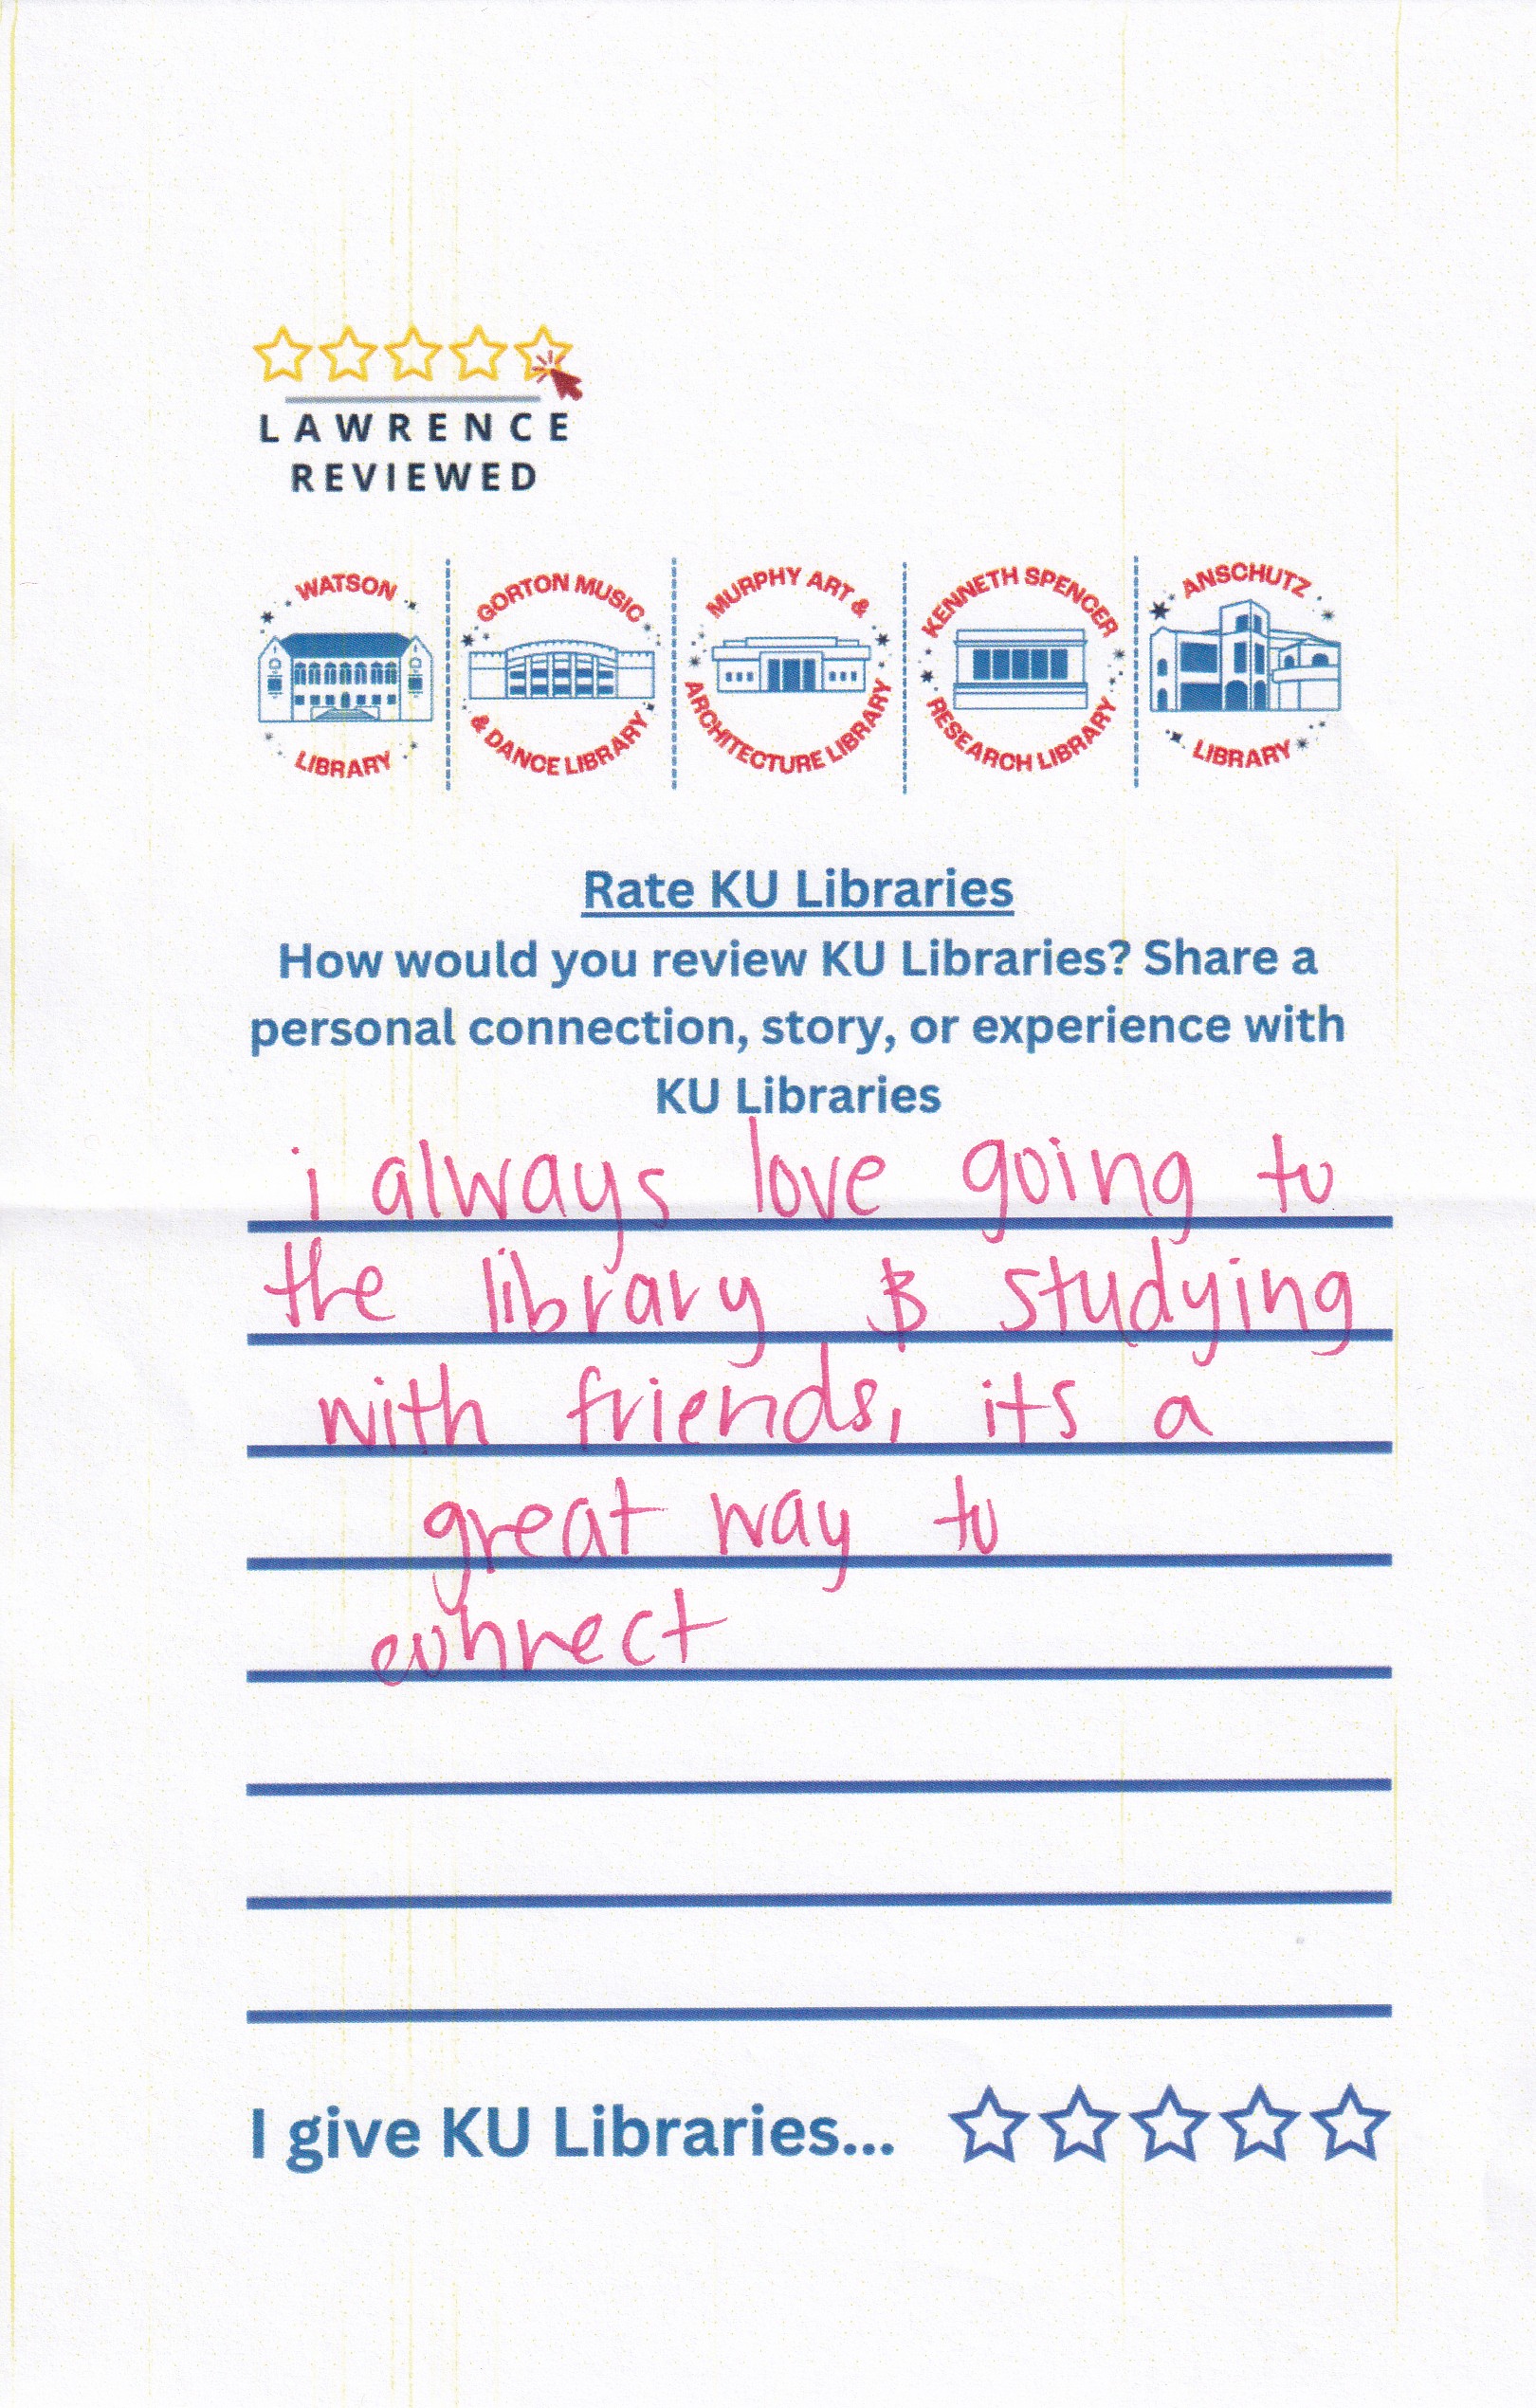 LAWRENCE
REVIEWED
WATSON LIBRARY
GORTON MUSIC & DANCE LIBRARY
MURPHY ART & ARCHITECTURE LIBRARY
KENNETH SPENCER RESEARCH LIBRARY
ANSCHUTZ LIBRARY
Rate KU Libraries
How would you review KU Libraries? Share a
personal connection, story, or experience with
KU Libraries
i always love going to
the library & studying
with friends, its a
great way to
connect
I give KU Libraries...